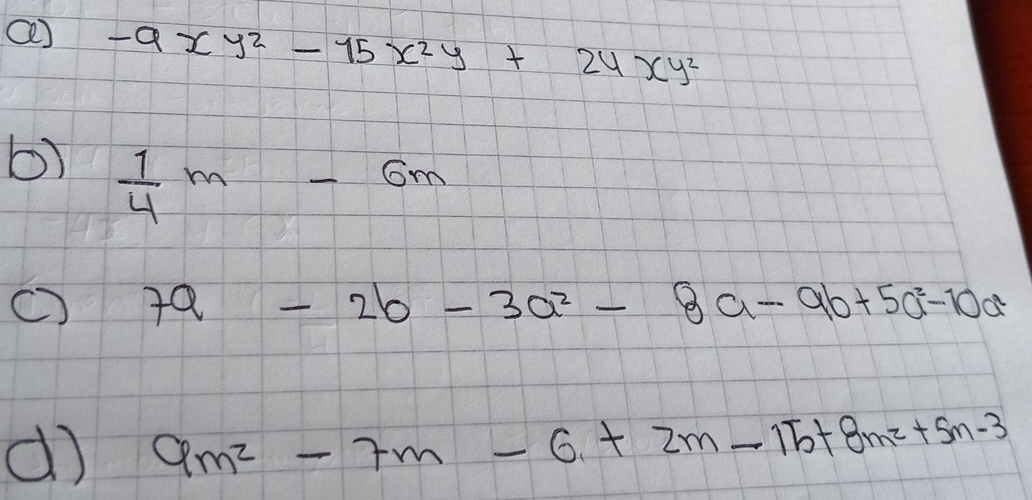 a) -9xy² - 15x²y + 24xy²
b) 1/4 m - 6m
c) 7a - 2b - 3a² - 8a - 9b + 5a² - 10a²
d) 9m² - 7m - 6 + 2m - 15 + 8m² + 5m - 3